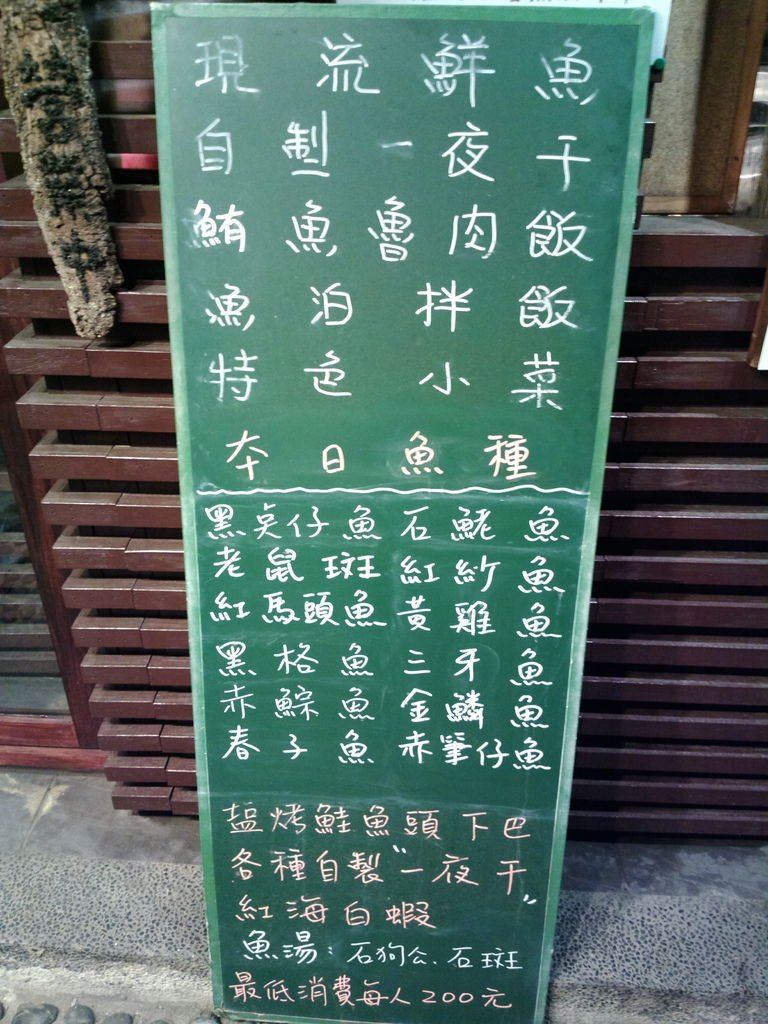 現流鮮魚
自製一夜干
鮪魚魯肉飯
魚泊拌飯
特色小菜
本日魚種
黑吳仔魚 石鮱魚
老鼠斑 紅紗魚
紅馬頭魚 黃雞魚
黑格魚 三牙魚
赤鯮魚 金鱗魚
春子魚 赤筆仔魚
盐烤鮭魚頭下巴
各種自製"一夜干"
紅海白蝦
魚湯:石狗公、石斑
最低消費每人200元